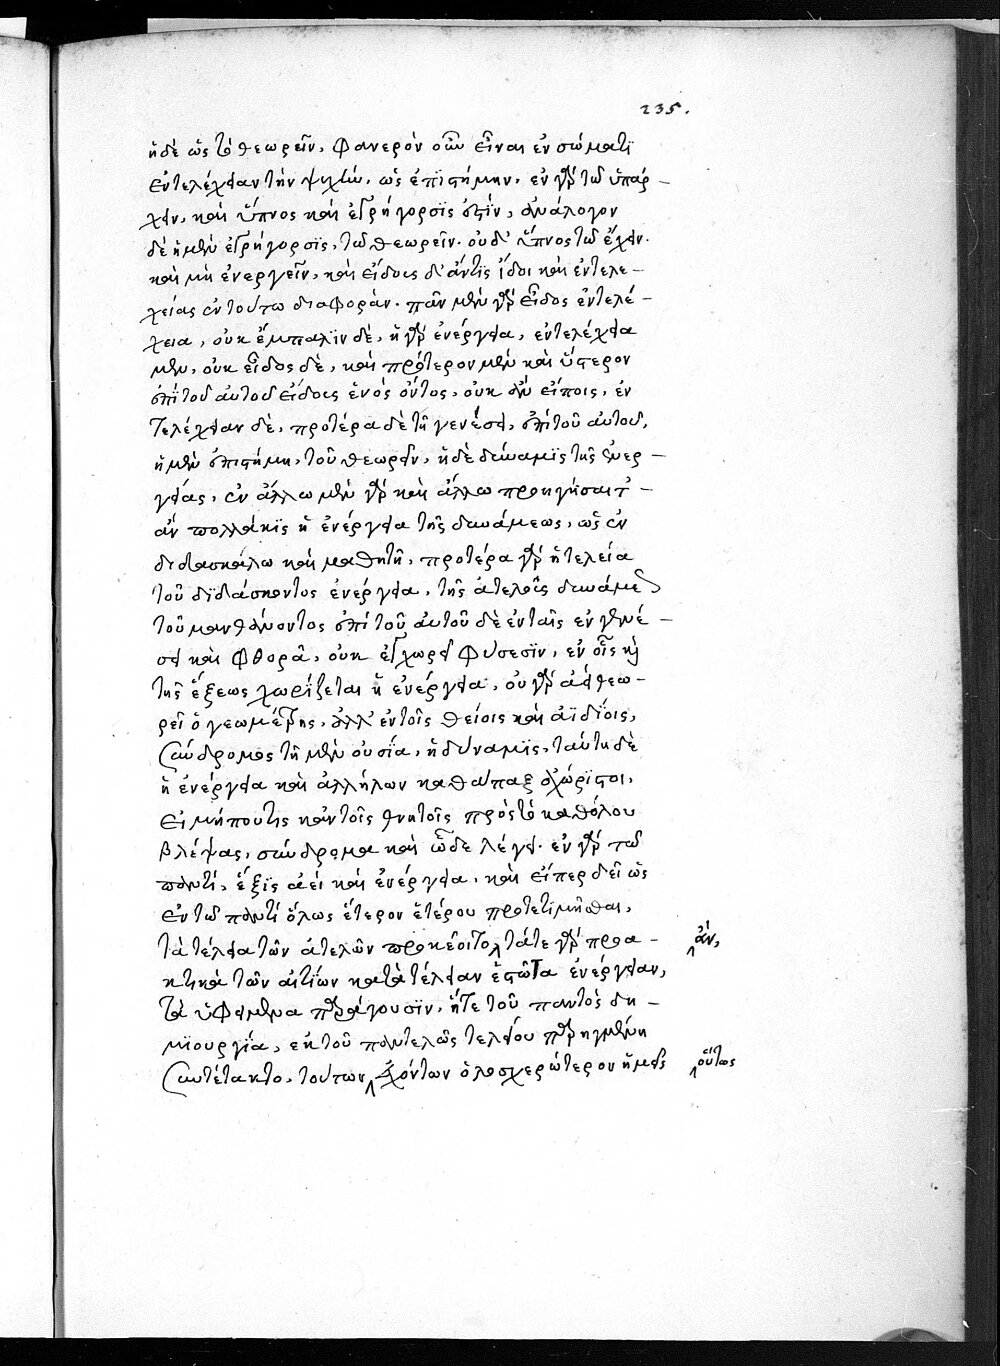 235.
ἡ δὲ ὡς τὸ θεωρεῖν, φανερὸν οὖν εἶναι ἐν σώματι
ἐντελέχειαν τὴν ψυχὴν, ὡς ἐπιστήμην, ἐν γὰρ τῶ ὑπάρ-
χειν, καὶ ὕπνος καὶ ἐγρήγορσις ἐστίν, ἀνάλογον
δὲ ἡ μὲν ἐγρήγορσις, τῶ θεωρεῖν. ὁ δ' ὕπνος τῶ ἔχειν.
καὶ μὴ ἐνεργεῖν, καὶ εἴδους δ' ἄν τις ἴδοι καὶ ἐντελε-
χείας ἐν τούτω διαφορὰν. πᾶν μὲν γὰρ εἶδος ἐντελέ-
χεια, οὐκ ἔμπαλιν δὲ, ἡ γὰρ ἐνέργεια, ἐντελέχεια
μὲν, οὐκ εἶδος δὲ, καὶ πρότερον μὲν καὶ ὕστερον
ἐπὶ τοῦ αὐτοῦ εἴδους ἑνὸς ὄντος, οὐκ ἂν εἴποις, ἐν
τελέχειαν δὲ, προτέρα δὲ τῆ γενέσει, ἐπὶ τοῦ αὐτοῦ,
ἡ μὲν ἐπιστήμη, τοῦ θεωρεῖν, ἡ δὲ δύναμις τῆς ἐνερ-
γείας, ἐν ἄλλω μὲν γὰρ καὶ ἄλλω προηγήσαιτ'-
ἂν πολλάκις ἡ ἐνέργεια τῆς δυνάμεως, ὡς ἐν
διδασκάλω καὶ μαθητῆ, προτέρα γὰρ ἡ τελεία
τοῦ διδάσκοντος ἐνέργεια, τῆς ἀτελοῦς δυνάμεως
τοῦ μανθάνοντος ἐπὶ τοῦ αὐτοῦ δὲ ἐν ταῖς ἐν γενέ-
σει καὶ φθορᾶ, οὐκ ἐγχωρεῖ φύσεσιν, ἐν οἷς καὶ
τῆς ἕξεως χωρίζεται ἡ ἐνέργεια, οὐ γὰρ ἀεὶ θεω-
ρεῖ ὁ γεωμέτρης, ἀλλ' ἐν τοῖς θείοις καὶ ἀϊδίοις,
σύνδρομος τῆ μὲν οὐσία, ἡ δύναμις, ταύτη δὲ
ἡ ἐνέργεια καὶ ἀλλήλων καθάπαξ ἀχώριστοι,
εἰ μήπου τις κἀν τοῖς θνητοῖς πρὸς τὸ καθόλου
βλέψας, σύνδρομα καὶ ὧδε λέγει. ἐν γὰρ τῶ
παντὶ, ἕξις ἀεὶ καὶ ἐνέργεια, καὶ εἴπερ δεῖ ὡς
ἐν τῶ παντὶ ὅλως ἕτερον ἑτέρου προτετιμῆσθαι,
τὰ τέλεια τῶν ἀτελῶν προκέοιτο τά τε γὰρ πρα-
ἂν,
κτικὰ τῶν αἰτίων κατὰ τέλειαν ἑστῶτα ἐνέργειαν,
τὰ ὑφειμένα παράγουσιν, ἥ τε τοῦ παντὸς δη-
μιουργία, ἐκ τοῦ παντελῶς τελείου παρηγμένη
συντέτακτο, τούτων ἐχόντων ὁλοσχερώτερον ἡμεῖς
οὕτως